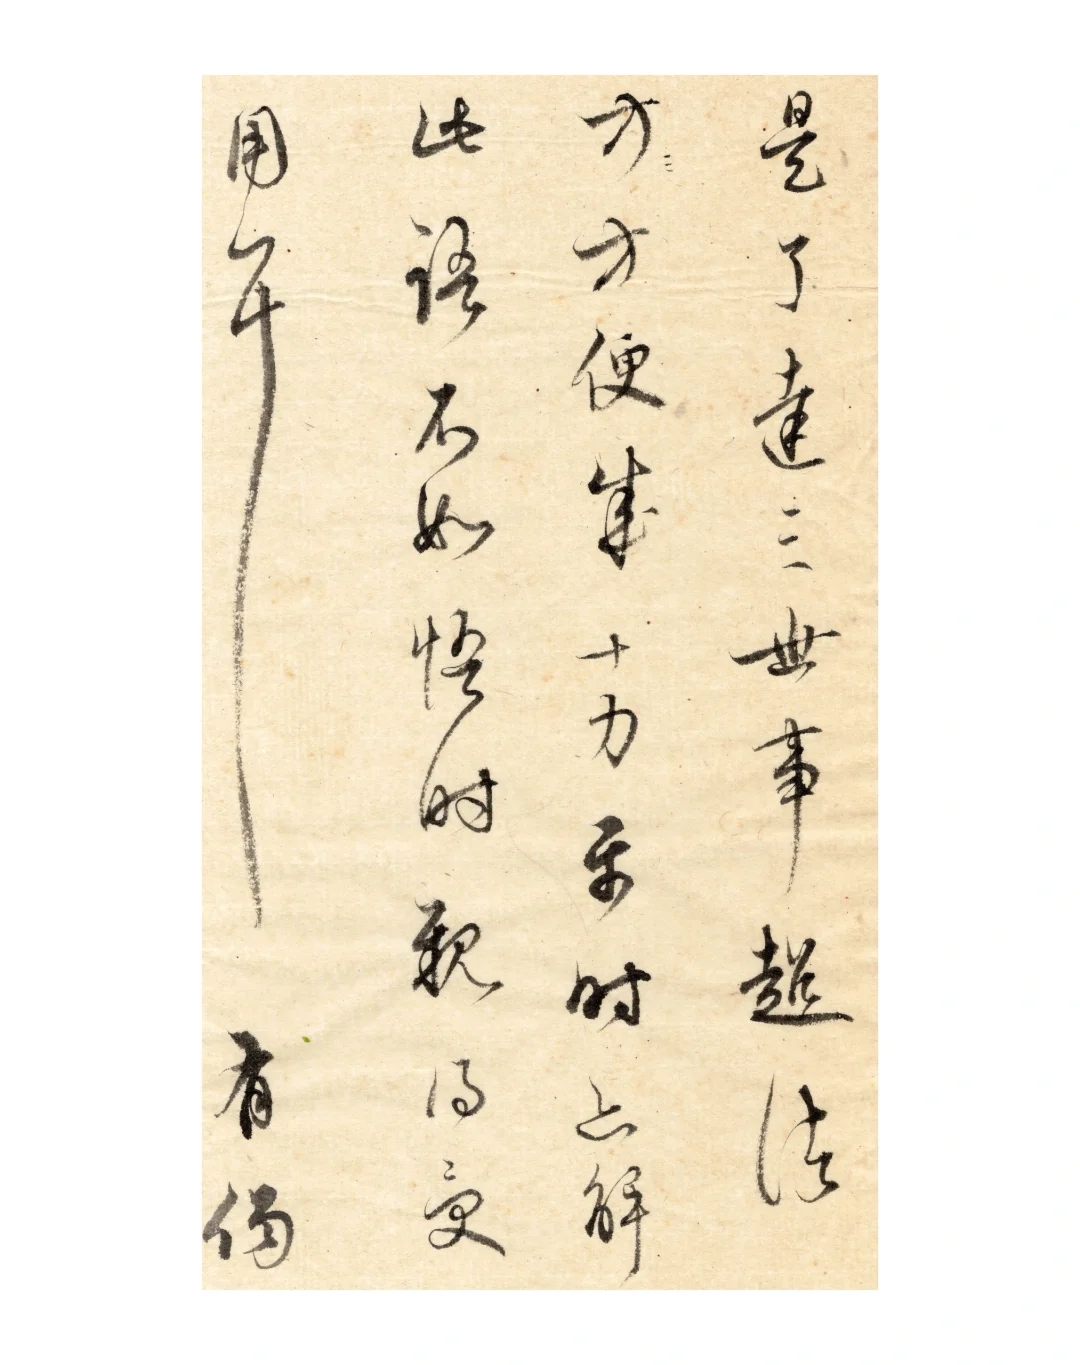 是了達三世事超諸
方方便成十力平時亦解
此語不如悟時親得受
用耳有偈